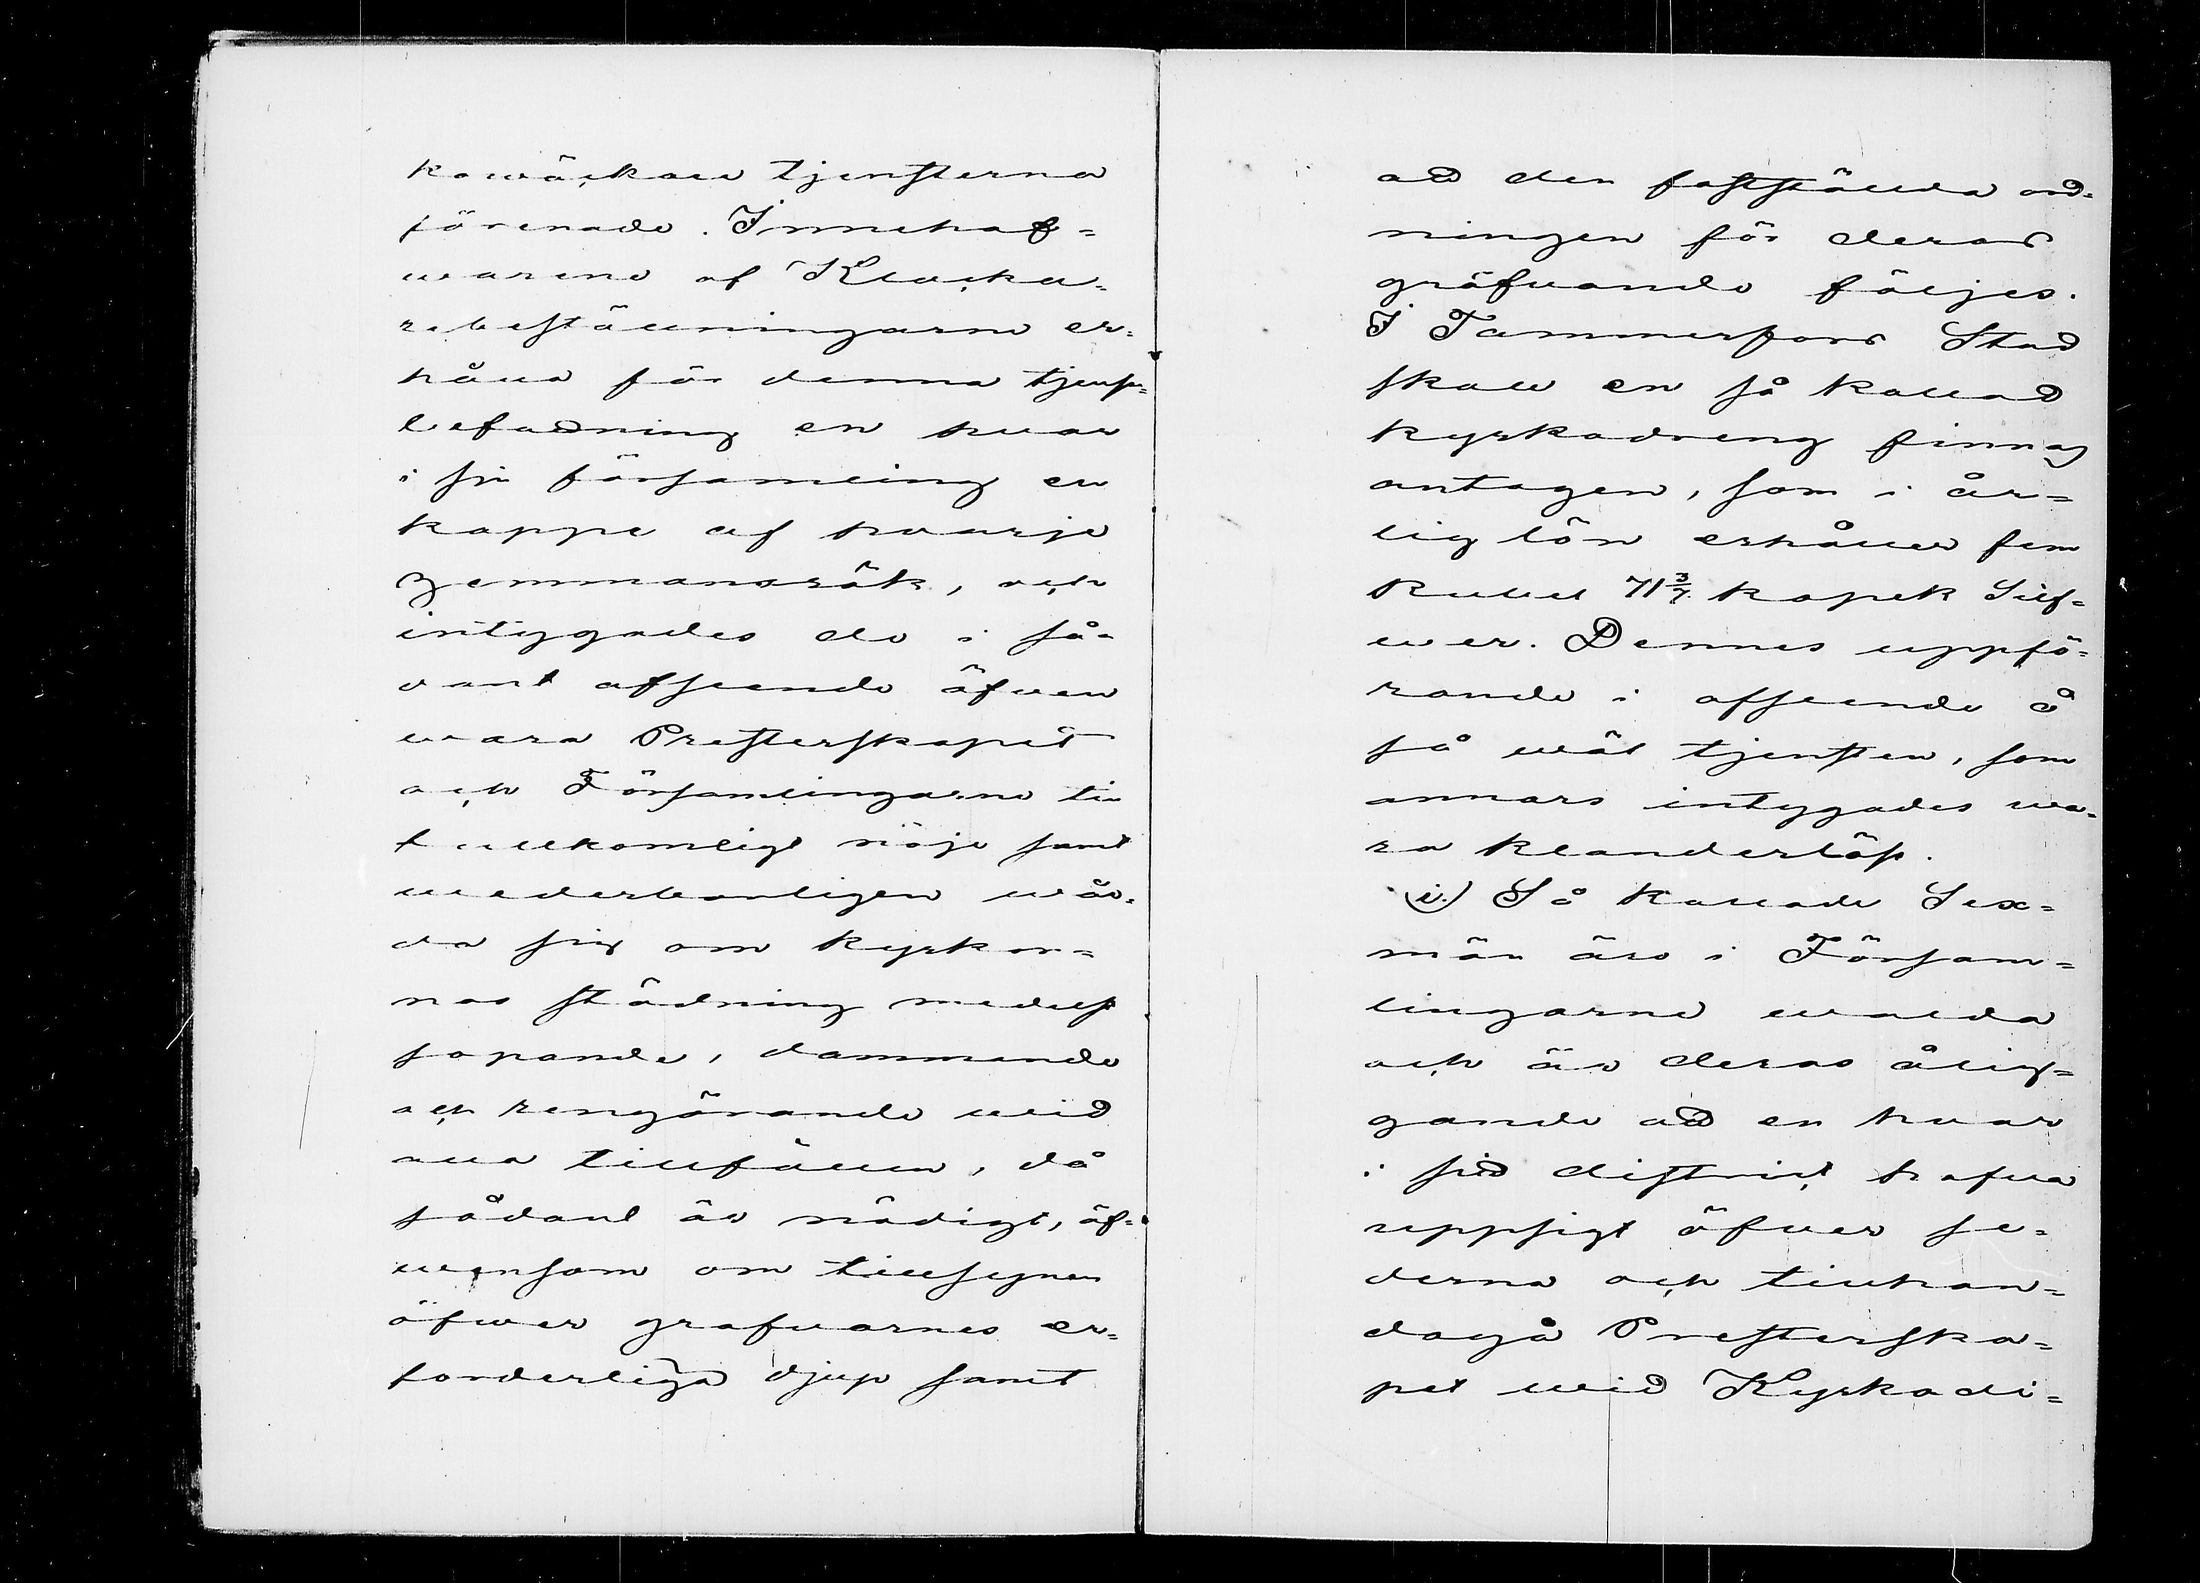 kowäckare tjensterna
förenade. Innehaf=
warene af Klocka=
rebeställningarne er=
hålla för denna tjenst=
befadning en hvar
i sin församling en
kappe af hvarje
hemmansrök, och
intygades de i så=
dant afseende äfven
wara Presterskapet
och Församlingarne til
fullkomligt nöje samt
wederbörligen wår=
da sig om kyrkor=
nas städning medelst
sopande, dammande
och rengörande wid
alla tillfällen, då
sådant är nödigt, äf=
wensom om tillsynen
öfwer grafvarnes er=
forderliga djup samt
ad den faststälda ord=
ningen för deras
gräfvande följes.
I Tammerfors Stad
skall en så kallad
kyrkodreng finnas
antagen, som i år=
lig lön erhåller fem
Rubel 71 3/7 kopek Silf=
wer. Dennes uppfö=
rande i afseende å
så wäl tjensten, som
annars intygades wa=
ra klanderlöst.
i.) Så kallade Sex=
män äro i Försam=
lingarne walda
och är deras ålig=
gande ad en hvar
i sid district hafva
uppsigt öfver se=
derna och tillhan=
dagå Prestersка=
pet wid Kyrkodi=